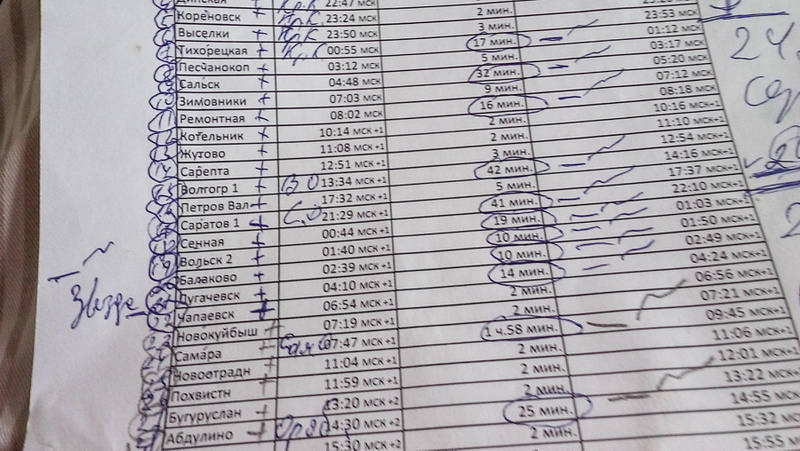 Динская 22:47 МСК
Кореновск + Кр.К 23:24 МСК 2 мин.
Выселки + Кр.К 23:50 МСК 3 мин. 23:53 МСК
Тихорецкая + Кр.К 00:55 МСК 17 мин. 01:12 МСК
Песчанокоп + 03:12 МСК 5 мин. 03:17 МСК
Сальск + 04:48 МСК 32 мин. 05:20 МСК
Зимовники + 07:03 МСК 9 мин. 07:12 МСК
Ремонтная + 08:02 МСК 16 мин. 08:18 МСК
Котельник + 10:14 МСК+1 2 мин. 10:16 МСК+1
Жутово + 11:08 МСК+1 2 мин. 11:10 МСК+1
Сарепта + 12:51 МСК+1 3 мин. 12:54 МСК+1
Волгогр 1 + ВО 13:34 МСК+1 42 мин. 14:16 МСК+1
Петров Вал + 17:32 МСК+1 5 мин. 17:37 МСК+1
Саратов 1 + С.О 21:29 МСК+1 41 мин. 22:10 МСК+1
Сенная + 00:44 МСК+1 19 мин. 01:03 МСК+1
Вольск 2 + 01:40 МСК+1 10 мин. 01:50 МСК+1
Балаково + 02:39 МСК+1 10 мин. 02:49 МСК+1
Пугачевск + 04:10 МСК+1 14 мин. 04:24 МСК+1
Чапаевск + 06:54 МСК+1 2 мин. 06:56 МСК+1
Новокуйбыш + 07:19 МСК+1 2 мин. 07:21 МСК+1
Самара + 07:47 МСК+1 1 ч.58 мин. 09:45 МСК+1
Новоотрадн 11:04 МСК+1 2 мин. 11:06 МСК+1
Похвистн 11:59 МСК+1 2 мин. 12:01 МСК+1
Бугуруслан + 13:20 МСК+2 2 мин. 13:22 МСК+2
Абдулино + 14:30 МСК+2 25 мин. 14:55 МСК+2
15:30 МСК+2 2 мин. 15:32 МСК+2
15:55 МСК+2
24